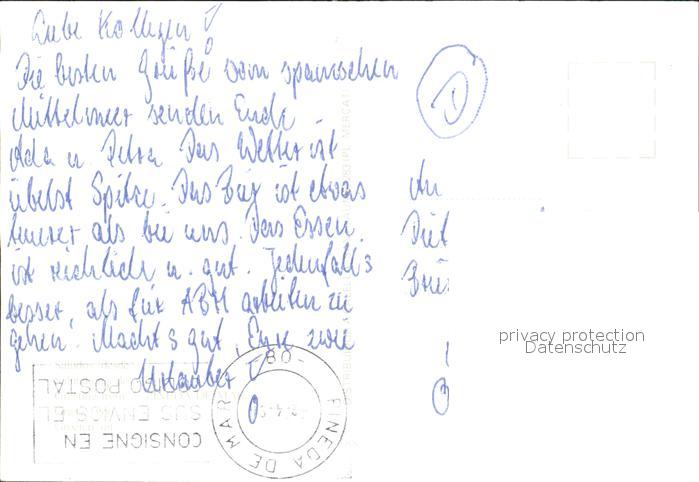 Liebe Kollegen!
Die besten Grüße vom spanischen
Mittelmeer senden Euch
Ada u Petra Das Wetter ist
übelst Spitze. Das Bier ist etwas
teurer als bei uns. Das Essen
ist reichlich u. gut. Jedenfalls
besser, als für ABM arbeiten zu
gehen. Machts gut. Eure zwei
Urlauber!
D
An
PINEDA DE MAR
-80-
CONSIGNE EN
SUS ENVIOS EL
CODIGO POSTAL
privacy protection
Datenschutz